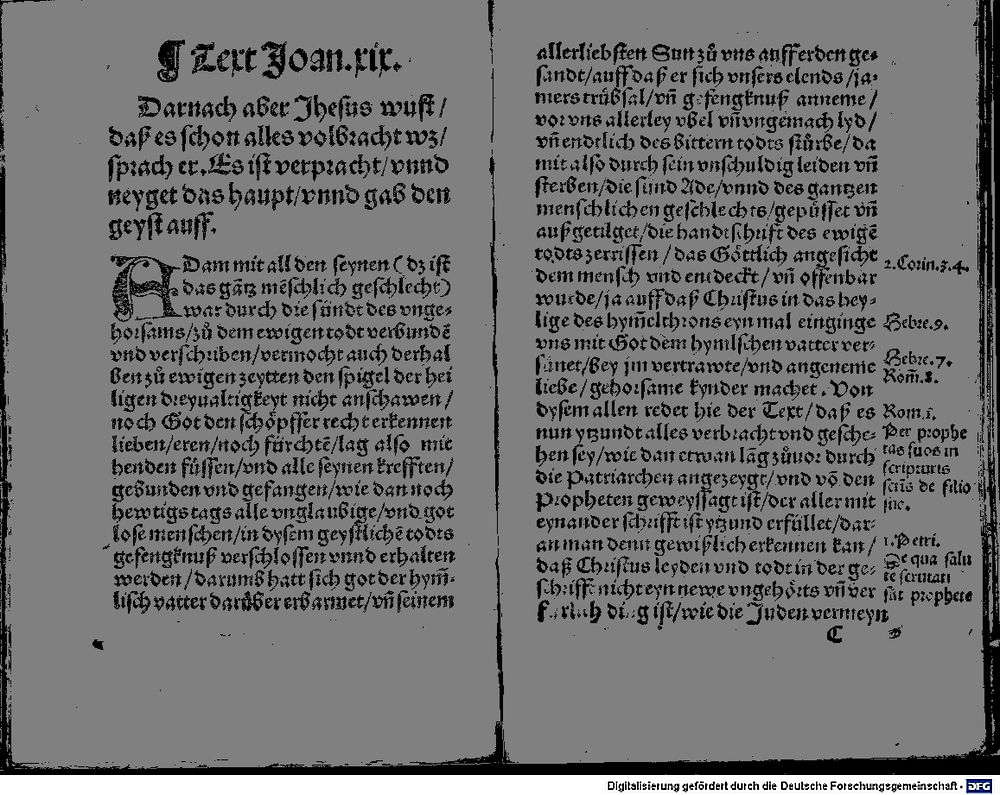 ¶ Text Joan.xix.
Darnach aber Jhesus wust /
daß es schon alles volbracht wz/
sprach er. Es ist verpracht/vnnd
neyget das haupt/vnnd gab den
geyst auff.
ADam mit all den seynen ( dz ist
das gãtz mẽschlich geschlecht)
war durch die sündt des vnge-
horsams/zů dem ewigen todt verbundẽ
vnd verschriben/vermocht auch derhal
ben zů ewigen zeytten den spigel der hei
ligen dreyualtigkeyt nicht anschawen /
noch Got den schöpffer recht erkennen
lieben/eren/noch fürchtẽ/lag also mit
henden füssen/vnd alle seynen krefften/
gebunden vnd gefangen/wie dan noch
hewtigs tags alle vnglaubige/vnd got
lose menschen/in dysem geystlichẽ todts
gefengknuß verschlossen vnnd erhalten
werden / darumb hatt sich got der hym̃-
lisch vatter darüber erbarmet/vñ seinem
allerliebsten Sun zů vns auff erden ge-
sandt/auff daß er sich vnsers elends /ja-
mers trübsal/vñ gefengknuß anneme /
vor vns allerley vbel vñ vngemach lyd /
vñ endtlich des bittern todts stürbe/da
mit also durch sein vnschuldig leiden vñ
sterben/die sünd Ade/vnnd des gantzen
menschlichen geschlechts/gepüsset vñ
außgetilget/die handtschrift des ewigẽ
todts zerrissen / das Göttlich angesicht
dem mensch vnd entdeckt/ vñ offenbar
wurde/ja auff daß Christus in das hey-
lige des hym̃elthrons eyn mal einginge
vns mit Got dem hymlschen vatter ver-
sünet/bey jm vertrawte/vnd angeneme
liebe/gehorsame kynder machet. Von
dysem allen redet hie der Text/daß es
nun ytzundt alles verbracht vnd gesche-
hen sey/wie dan etwan lãg zůuor durch
die Patriarchen angezeygt/vnd võ den
Propheten geweyssagt ist/der aller mit
eynander schrifft ist ytzund erfüllet/dar-
an man denn gewißlich erkennen kan/
daß Christus leyden vnd todt in der ge-
schrifft nicht eyn newe vngehörts vñ ver
ding ist/wie die Juden vermeyn
C
2.Corin.3.4.
Hebre.9.
Hebre.7.
Rom̃.8.
Rom.1.
Per prophe
tas suos in
scripturis
de filio
1.Petri.
De qua salu
te scrutati
sãt prophete
Digitalisierung gefördert durch die Deutsche Forschungsgemeinschaft - DFG